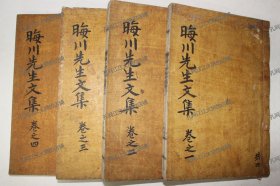 晦川先生文集
卷之一
共四
晦川先生文集
卷之二
晦川先生文集
卷之三
晦川先生文集
卷之四